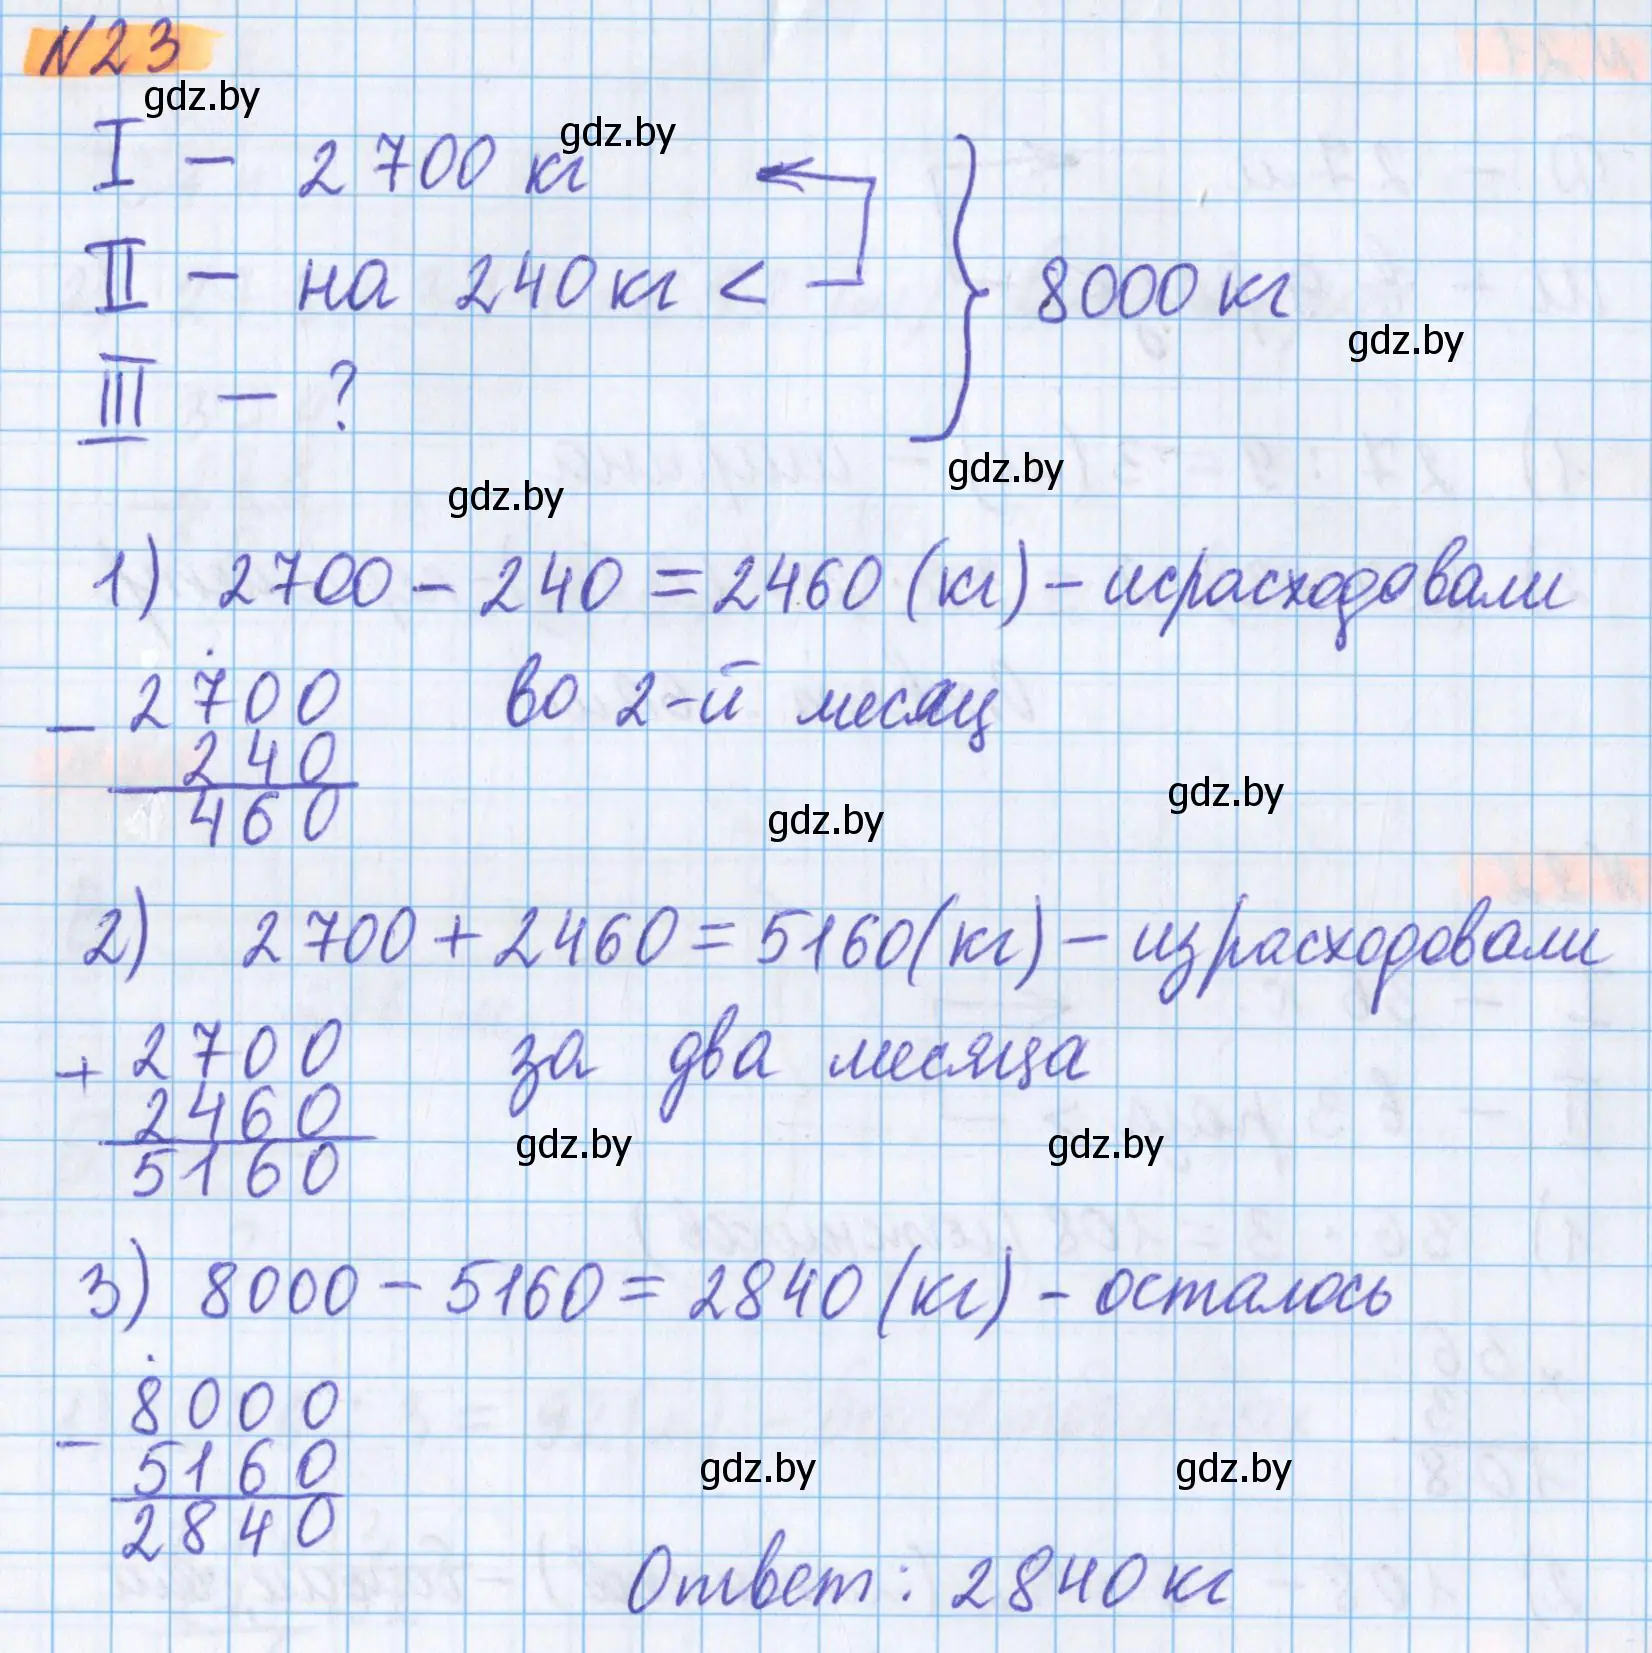 N23
gdz.by
I – 2 700 кг
gdz.by
II – на 240 кг <
8000 кг
gdz.by
III – ?
gdz.by
gdz.by
1) 2700 – 240 = 2460 (кг) – израсходовали
во 2-й месяц
– 2700
240
460
gdz.by
gdz.by
2) 2700 + 2460 = 5160 (кг) – израсходовали
за два месяца
+ 2700
2460
5160
gdz.by
gdz.by
3) 8000 – 5160 = 2840 (кг) – осталось
– 8000
5160
2840
gdz.by
gdz.by
Ответ: 2840 кг